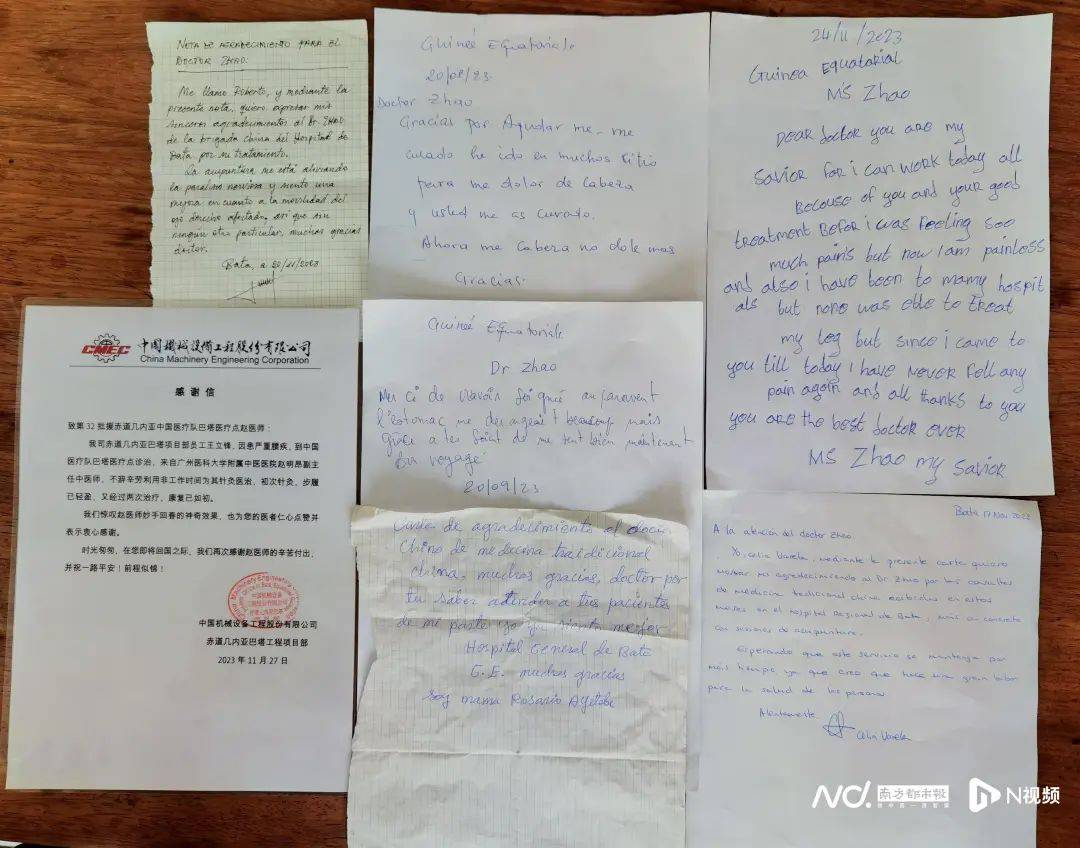 NOTA DE AGRADECIMIENTO PARA EL
DOCTOR ZHAO.
Me llamo Roberto, y mediante la
presente nota, quiero expresar mis
sinceros agradecimientos al Dr. ZHAO
de la brigada china del Hospital de
Bata por su tratamiento.
La acupuntura me está aliviando
la paralisis nerviosa y siento una
mejora en cuanto a la movilidad del
ojo derecho afectado, así que sin
ningún otro particular, muchas gracias
doctor.
Bata, a 20/11/2023
Guineé Equatoriale
20/08/23
Doctor Zhao
Gracias por Ayudar me - me
curado he ido en muchos sitio
para me dolor de Cabeza
y usted me as curado.
Ahora me Cabeza no dole mas
Gracias.
24/11/2023
Guinea Equatorial
MS Zhao
DEAR doctor you are my
Savior for i can work today all
Because of you and your good
treatment Befor i was feeling soo
much pains but now I am painless
and also i have been to mamy hospit
als but none was able to treat
my Leg but since i came to
you till today I have NEVER Fell any
pain again and all thanks to you
you are the best doctor ever
MS Zhao my Savior
CMEC 中国机械设备工程股份有限公司
China Machinery Engineering Corporation
感谢信
致第 32 批援赤道几内亚中国医疗队巴塔医疗点赵医师：
我司赤道几内亚巴塔项目部员工王立锋，因患严重腰疾，到中国
医疗队巴塔医疗点诊治，来自广州医科大学附属中医医院赵明昂副主
任中医师，不辞辛劳利用非工作时间为其针灸医治，初次针灸，步履
已轻盈，又经过两次治疗，康复已如初。
我们惊叹赵医师妙手回春的神奇效果，也为您的医者仁心点赞并
表示衷心感谢。
时光匆匆，在您即将回国之际，我们再次感谢赵医师的辛苦付出，
并祝一路平安！前程似锦！
中国机械设备工程股份有限公司
赤道几内亚巴塔工程项目部
2023 年 11 月 27 日
Guineé Equatoriale
Dr Zhao
Mer ci de m'avoir soigné auparavent
l'estomac me derangeait beaucoup mais
grâce a tes soint de me sent bien maintenant
Bon voyage
20/09/23
de agradecimiento al
Chino de medicina traidicional
china, muchas gracias, doctor por
tu saber atender a tus pacientes
de mi parte yo ya siento mejor
Hospital General de Bata
G.E. muchas gracias
Soy mama Rosario Ayetebe
Bata 17 Nov 2023
A la atención del doctor Zhao
Yo, Celia Varela, mediante la presente carta quiero
mostrar mi agradecimiento al Dr Zhao por las consultas
de medicina tradicional china recibidas en estos
meses en el Hospital Regional de Bata, más en concreto
las sesiones de acupuntura.
Esperando que este servicio se mantenga por
más tiempo ya que creo que hace una gran labor
para la salud de las personas
Atentamente
Celia Varela
南方都市报
N视频